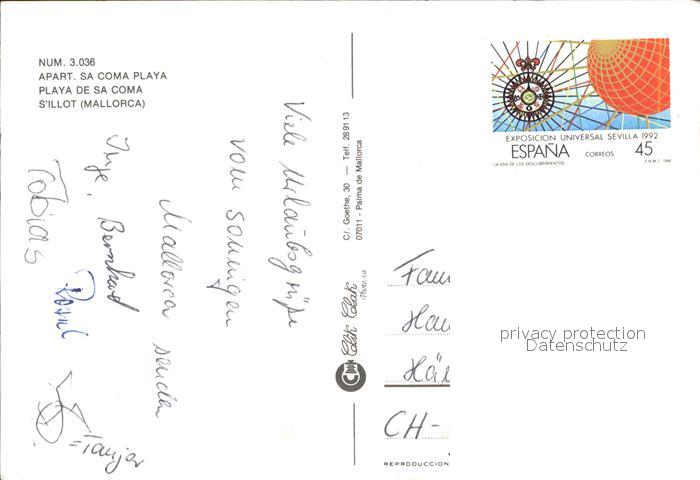 NUM. 3.036
APART. SA COMA PLAYA
PLAYA DE SA COMA
S'ILLOT (MALLORCA)
Viele Urlaubsgrüße
vom sonnigen
Mallorca senden
Inge, Bernhard
Tobias
=Tanja
C/. Goethe, 30 — Telf. 289113
07011 - Palma de Mallorca
Clak Clak
Photo s.a.
EXPOSICION UNIVERSAL SEVILLA 1992
ESPAÑA CORREOS 45
LA ERA DE LOS DESCUBRIMIENTOS F.N.M.T. 1988
Fam
Hau
CH-
REPRODUCCION
privacy protection
Datenschutz